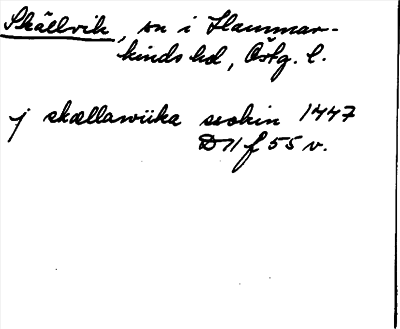 Skällvik, sn i Hammar-
kinds hd, Östg. l.
j skællawiika sokin 1447
D 11 f 55 v.